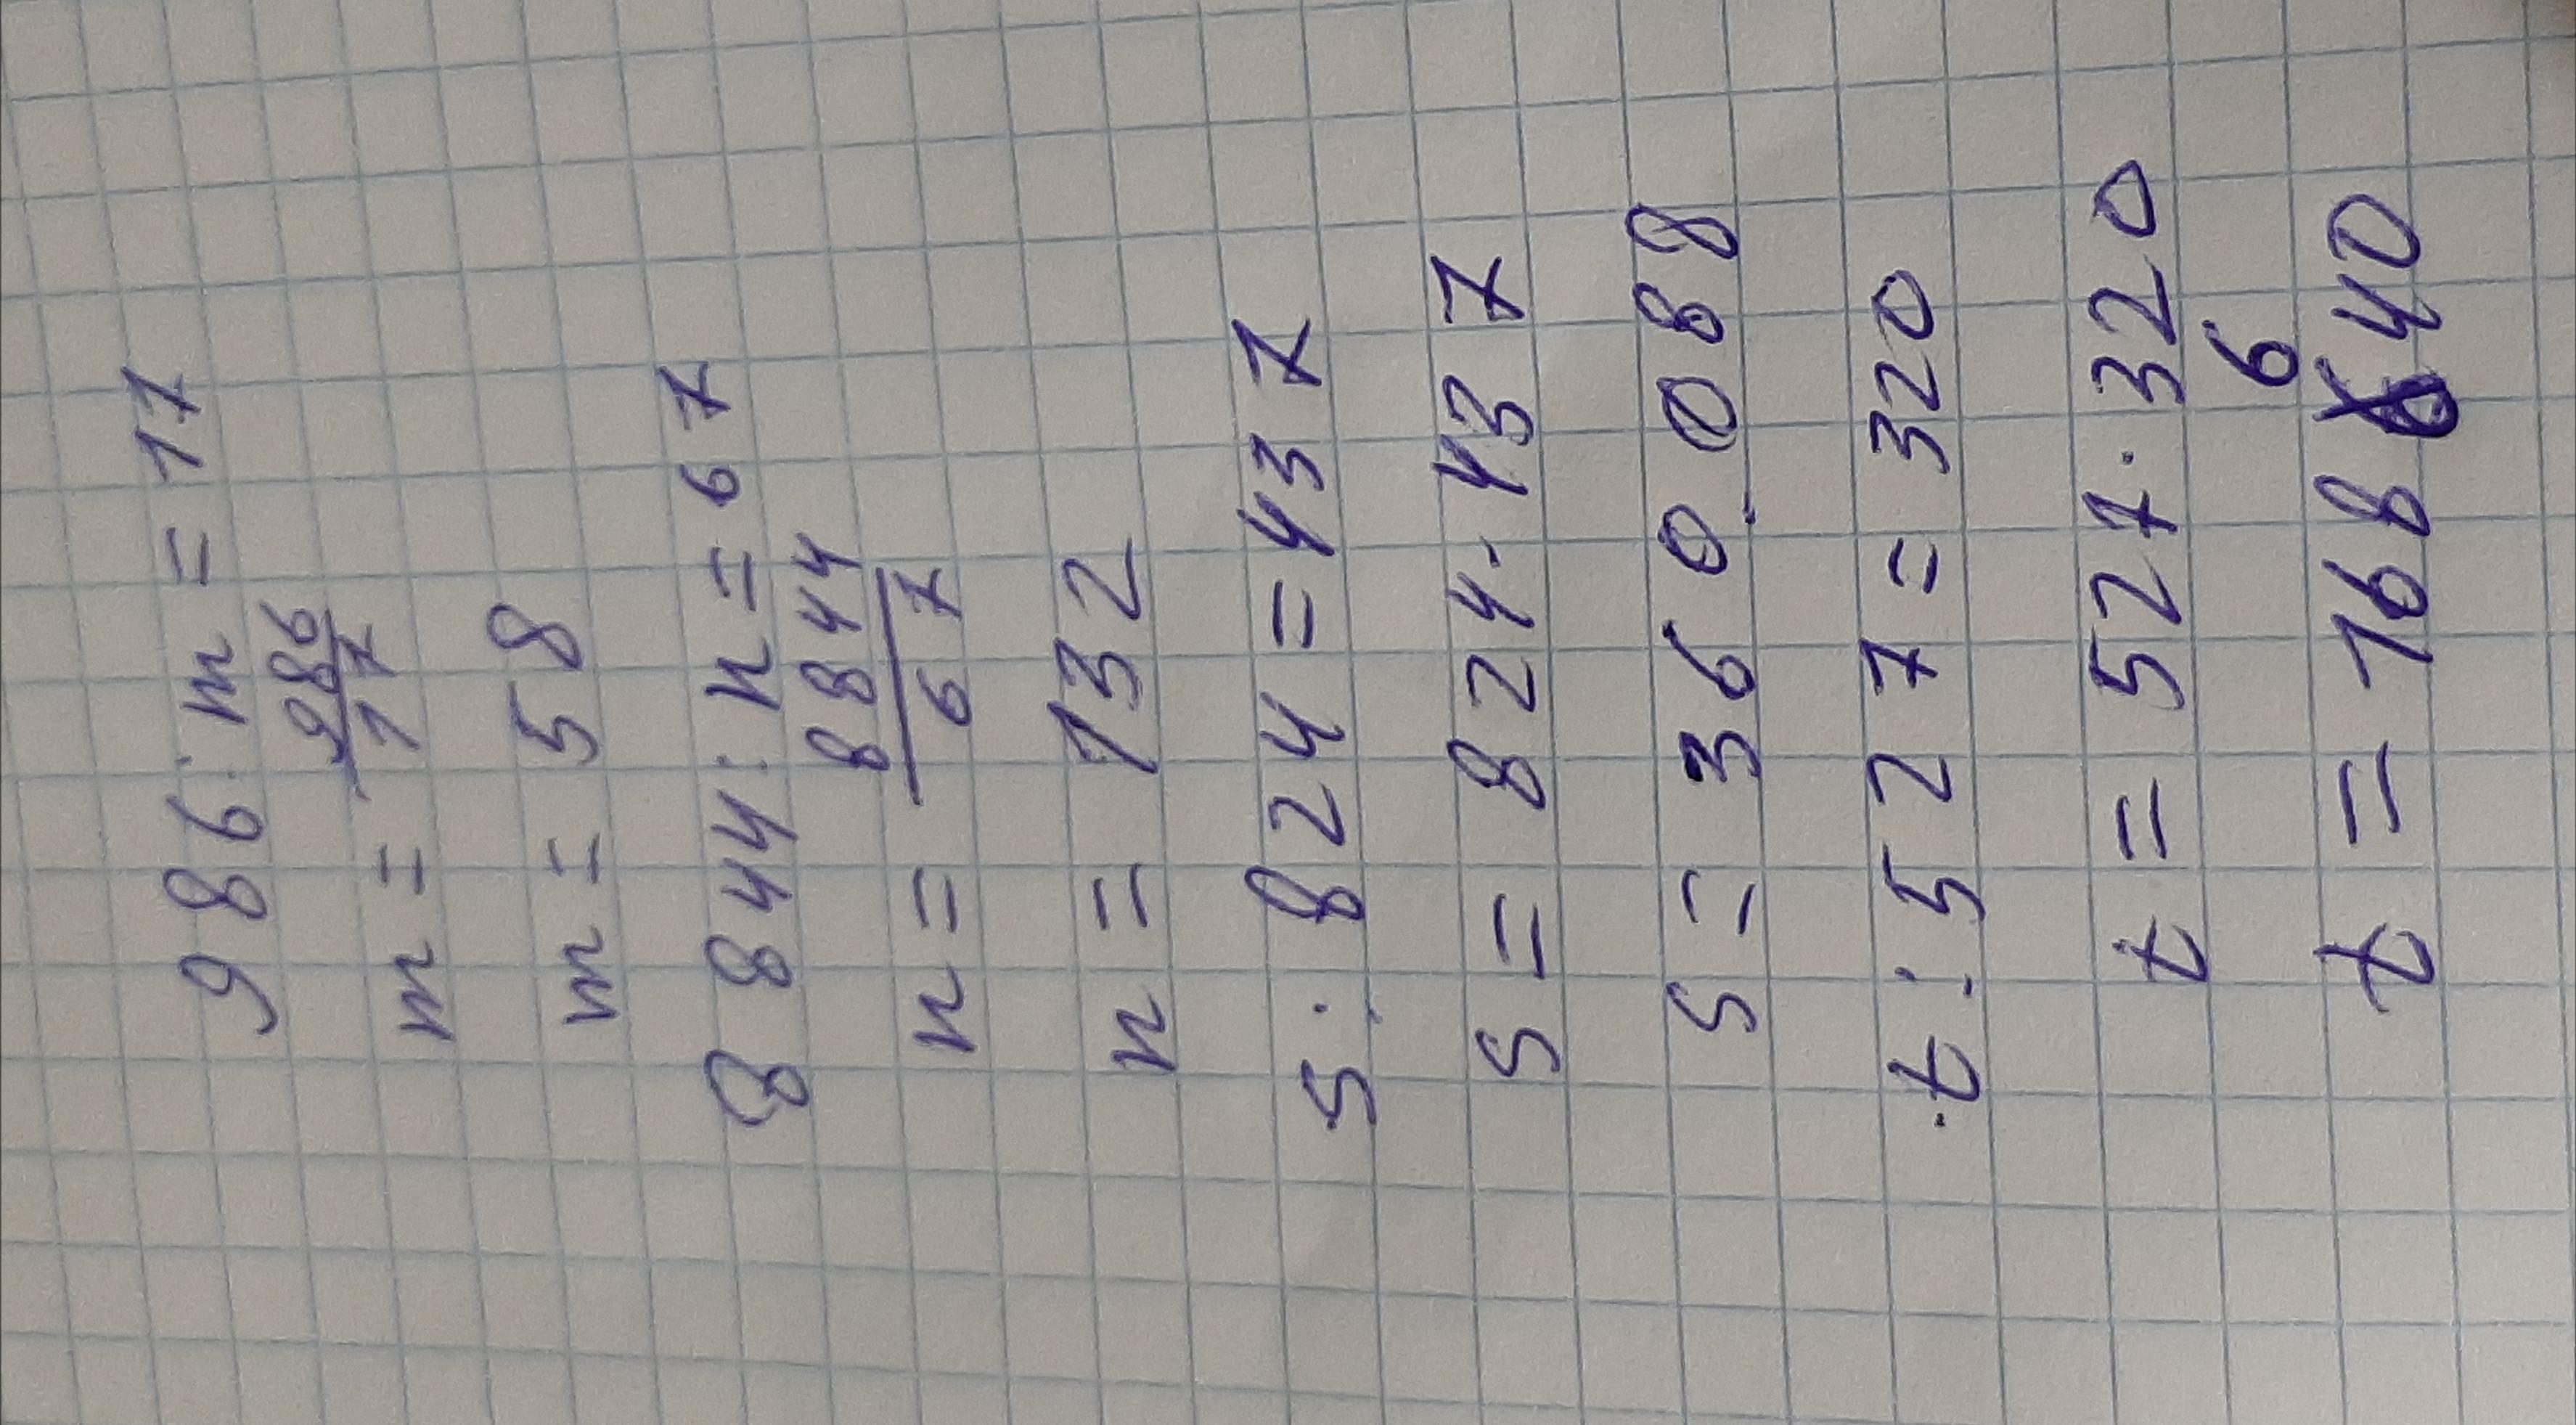 986 : m = 17
m = 986/17
m = 58
8844 : n = 67
n = 8844/67
n = 132
s : 824 = 437
s = 824 · 437
s = 360 088
t : 527 = 320
t = 527 · 320
6
t = 168640